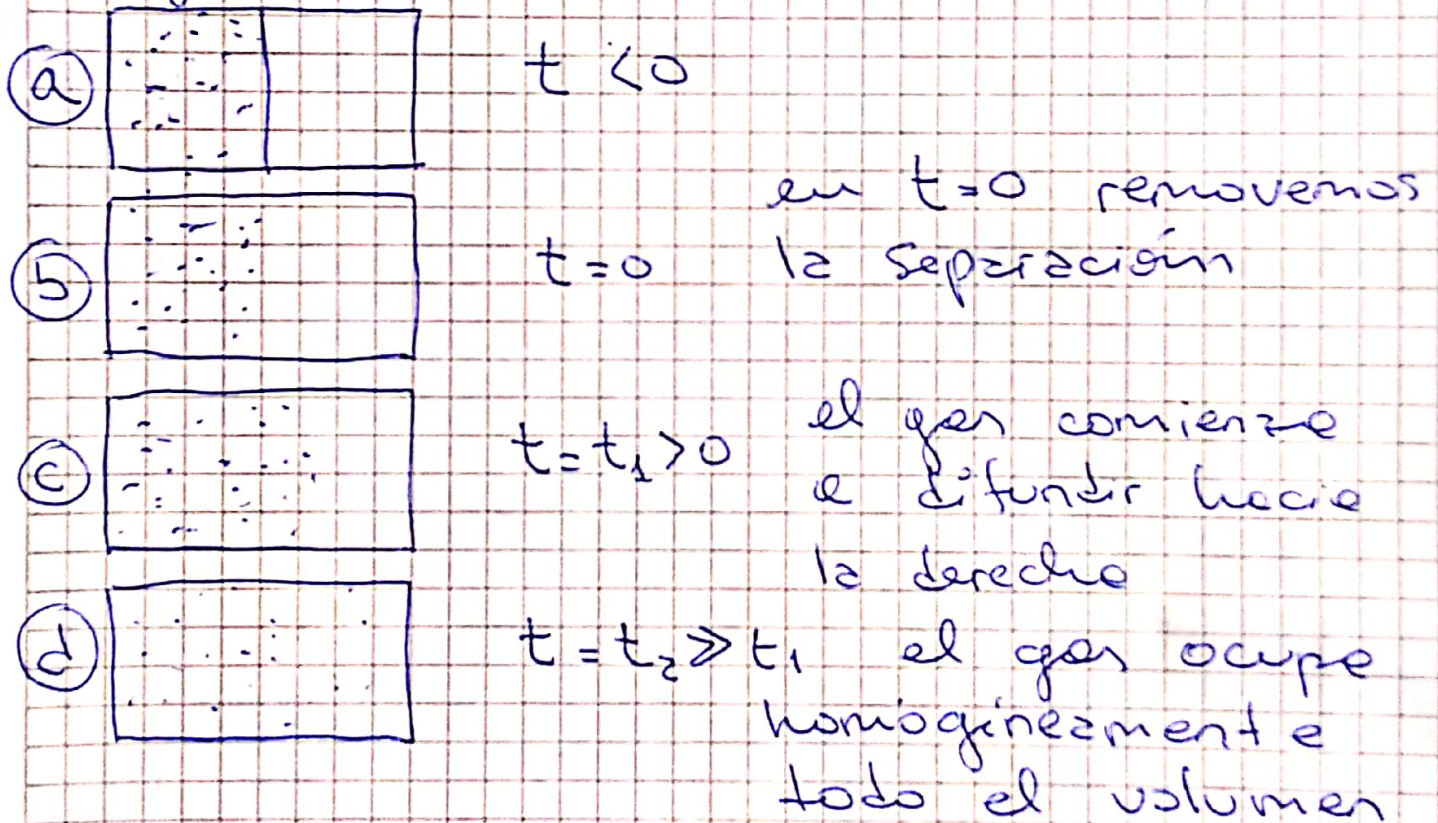 ⓐ t < 0
en t=0 removemos
ⓑ t=0 la separación
el gas comienza
ⓒ t=t₁>0 a difundir hacia
la derecha
ⓓ t=t₂≫t₁ el gas ocupa
homogéneamente
todo el volumen